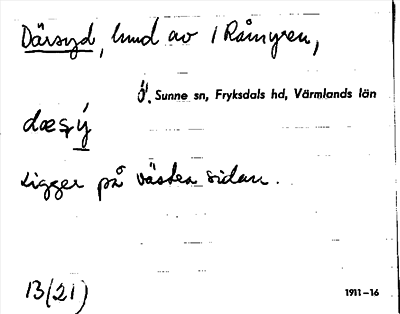 Därsyd, lund av / Råmyren,
Ö. Sunne sn, Fryksdals hd, Värmlands län
Ligger på västra sidan.
13(21)
1911-16